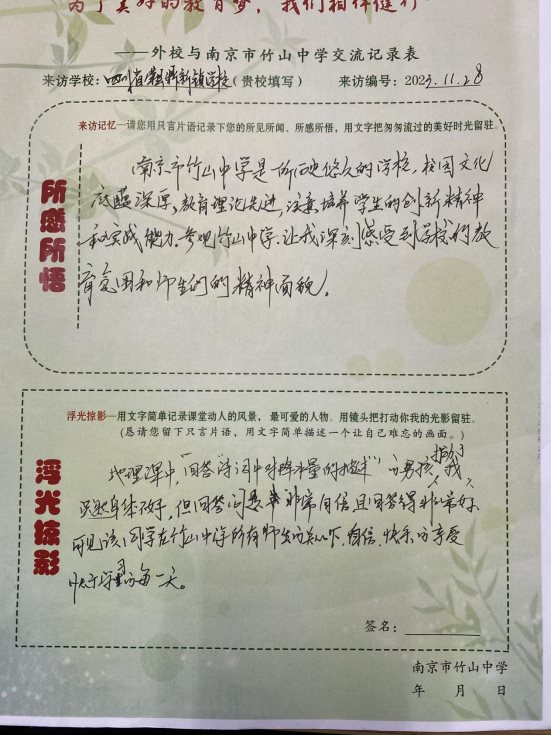 为了美好的教育梦，我们相伴健行
——外校与南京市竹山中学交流记录表
来访学校：四川省 新镇学校（贵校填写） 来访编号：2023.11.28
来访记忆—请您用只言片语记录下您的所见所闻、所感所悟，用文字把匆匆流过的美好时光留驻。
所感所悟
南京市竹山中学是一所历史悠久的学校，校园文化
底蕴深厚，教育理论先进，注意培养学生的创新精神
和实践能力。参观竹山中学，让我深刻感受到学校的教
育氛围和师生们的精神面貌。
浮光掠影—用文字简单记录课堂动人的风景，最可爱的人物。用镜头把打动你我的光影留驻。
（恳请您留下只言片语，用文字简单描述一个让自己难忘的画面。）
浮光掠影
地理课中，"回答诗词中对降水量的描述"的男孩，
虽然身体不好，但回答问题非常自信且回答得非常好
可见该同学在竹山中学所有师生的关心下，自信、快乐的享受
学习的每一天。
签名：
南京市竹山中学
年 月 日